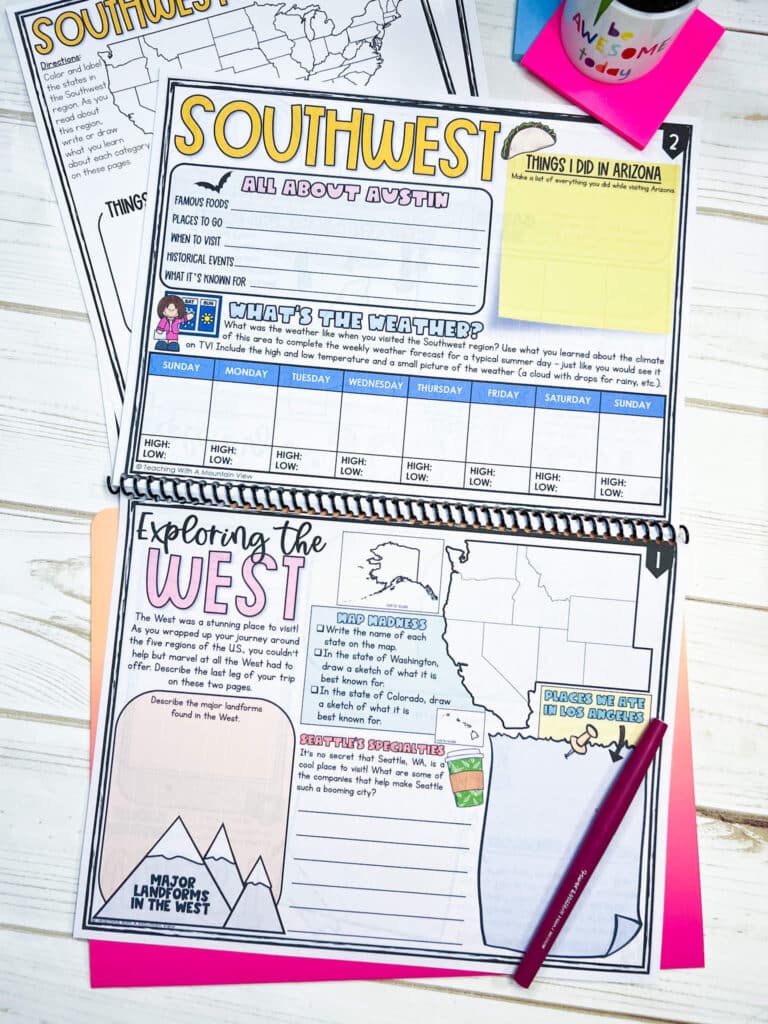 SOUTHWEST
Directions:
Color and label
the states in
the Southwest
region. As you
read about
this region,
write or draw
what you learn
about each category
on these pages.
THINGS
be
AWESOME
today
SOUTHWEST
2
ALL ABOUT AUSTIN
FAMOUS FOODS
PLACES TO GO
WHEN TO VISIT
HISTORICAL EVENTS
WHAT IT'S KNOWN FOR
THINGS I DID IN ARIZONA
Make a list of everything you did while visiting Arizona.
SAT SUN
WHAT'S THE WEATHER?
What was the weather like when you visited the Southwest region? Use what you learned about the climate
of this area to complete the weekly weather forecast for a typical summer day - just like you would see it
on TV! Include the high and low temperature and a small picture of the weather (a cloud with drops for rainy, etc.).
SUNDAY MONDAY TUESDAY WEDNESDAY THURSDAY FRIDAY SATURDAY SUNDAY
HIGH: HIGH: HIGH: HIGH: HIGH: HIGH: HIGH: HIGH:
LOW: LOW: LOW: LOW: LOW: LOW: LOW: LOW:
© Teaching With A Mountain View
Exploring the
WEST
1
The West was a stunning place to visit!
As you wrapped up your journey around
the five regions of the U.S., you couldn't
help but marvel at all the West had to
offer. Describe the last leg of your trip
on these two pages.
Describe the major landforms
found in the West.
MAJOR
LANDFORMS
IN THE WEST
MAP MADNESS
Write the name of each
state on the map.
In the state of Washington,
draw a sketch of what it is
best known for.
In the state of Colorado, draw
a sketch of what it is
best known for.
SEATTLE'S SPECIALTIES
It's no secret that Seattle, WA, is a
cool place to visit! What are some of
the companies that help make Seattle
such a booming city?
PLACES WE ATE
IN LOS ANGELES